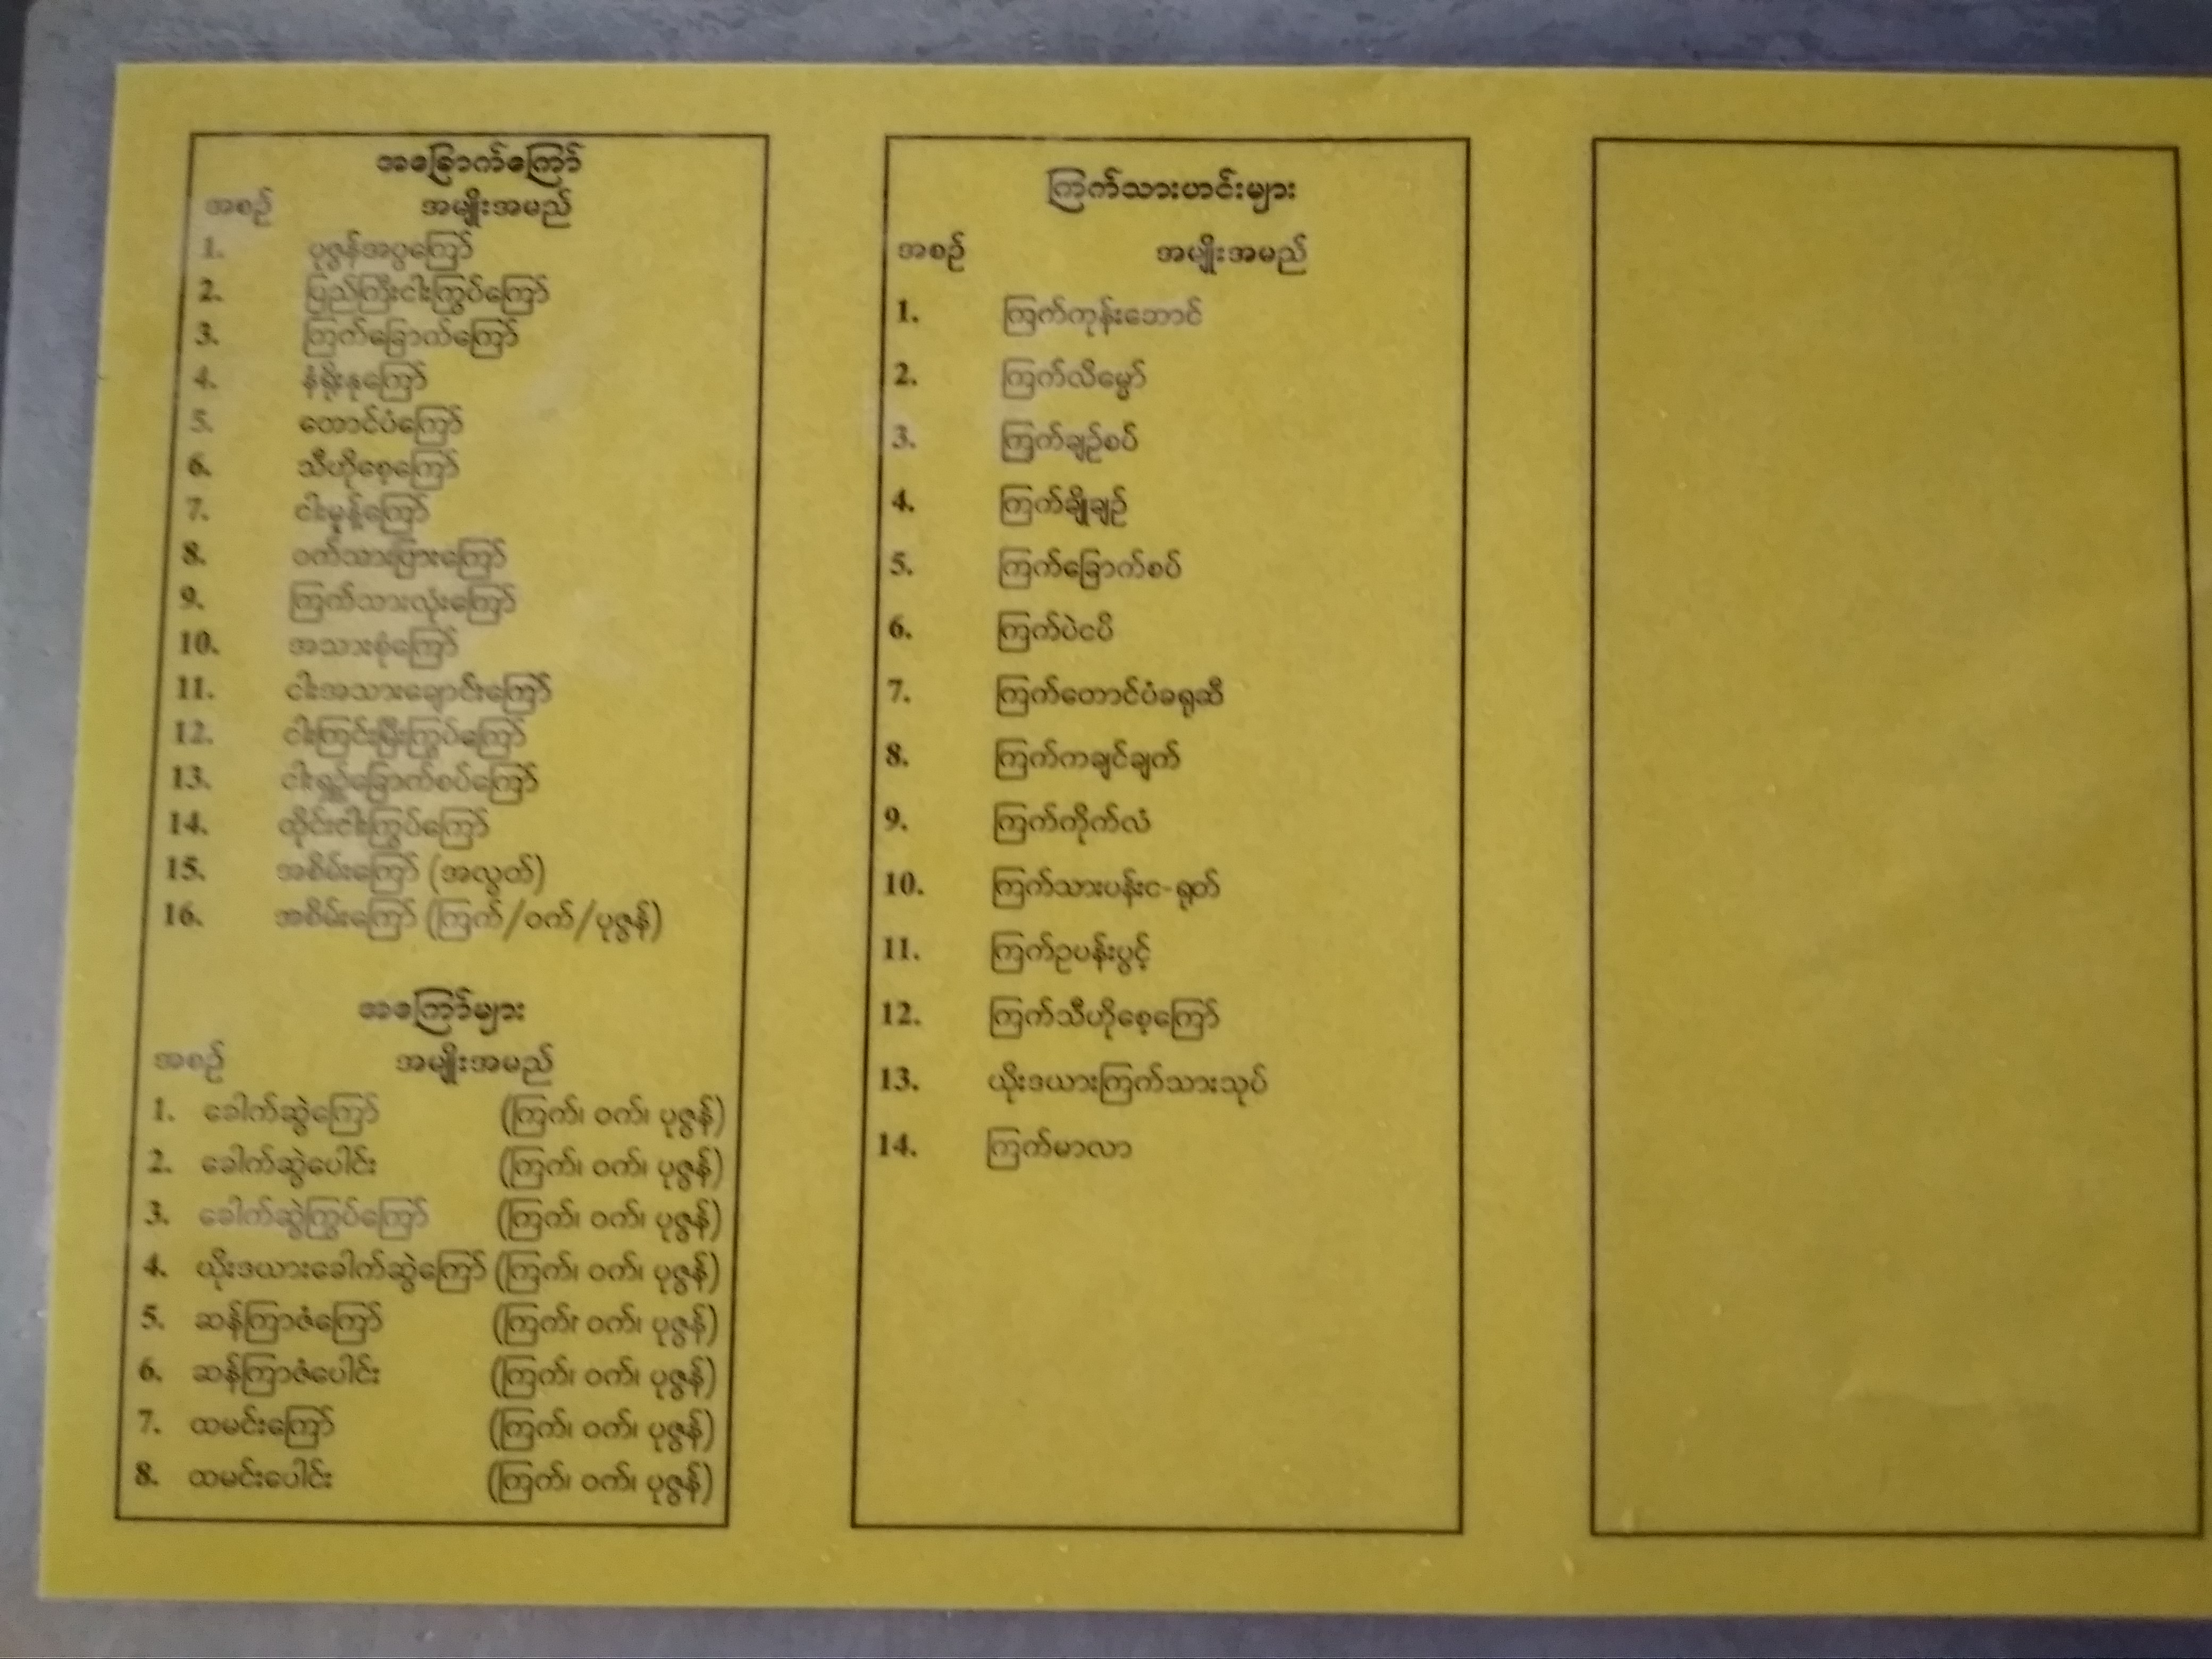 အခြောက်ကြော်
အစဉ် အမျိုးအမည်
1. ပုဇွန်အပွကြော်
2. ပြည်ကြီးငါးကြွပ်ကြော်
3. ကြက်ခြောက်ကြော်
4. နံရိုးနုကြော်
5. တောင်ပံကြော်
6. သီဟိုစေ့ကြော်
7. ငါးမုန့်ကြော်
8. ဝက်သားပြားကြော်
9. ကြက်သားလုံးကြော်
10. အသားစုံကြော်
11. ငါးအသားချောင်းကြော်
12. ငါးကြင်းမြီးကြွပ်ကြော်
13. ငါးရှဉ့်ခြောက်စပ်ကြော်
14. ထိုင်းငါးကြွပ်ကြော်
15. အစိမ်းကြော် (အလွတ်)
16. အစိမ်းကြော် (ကြက်/ဝက်/ပုဇွန်)
အကြော်များ
အစဉ် အမျိုးအမည်
1. ခေါက်ဆွဲကြော် (ကြက်၊ ဝက်၊ ပုဇွန်)
2. ခေါက်ဆွဲပေါင်း (ကြက်၊ ဝက်၊ ပုဇွန်)
3. ခေါက်ဆွဲကြွပ်ကြော် (ကြက်၊ ဝက်၊ ပုဇွန်)
4. ယိုးဒယားခေါက်ဆွဲကြော် (ကြက်၊ ဝက်၊ ပုဇွန်)
5. ဆန်ကြာဇံကြော် (ကြက်၊ ဝက်၊ ပုဇွန်)
6. ဆန်ကြာဇံပေါင်း (ကြက်၊ ဝက်၊ ပုဇွန်)
7. ထမင်းကြော် (ကြက်၊ ဝက်၊ ပုဇွန်)
8. ထမင်းပေါင်း (ကြက်၊ ဝက်၊ ပုဇွန်)
ကြက်သားဟင်းများ
အစဉ် အမျိုးအမည်
1. ကြက်ကုန်းဘောင်
2. ကြက်လိမ္မော်
3. ကြက်ချဉ်စပ်
4. ကြက်ချိုချဉ်
5. ကြက်ခြောက်စပ်
6. ကြက်ပဲငပိ
7. ကြက်တောင်ပံခရုဆီ
8. ကြက်ကချင်ချက်
9. ကြက်ကိုက်လံ
10. ကြက်သားပန်းင-ရုတ်
11. ကြက်ဥပန်းပွင့်
12. ကြက်သီဟိုစေ့ကြော်
13. ယိုးဒယားကြက်သားသုပ်
14. ကြက်မာလာ